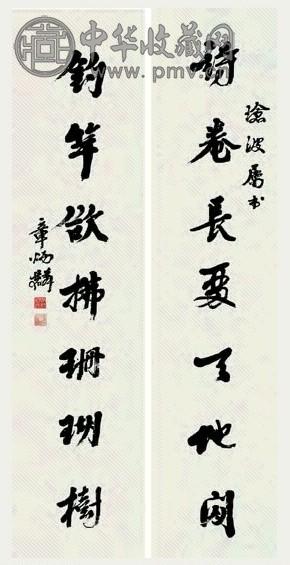 中华收藏网
www.pmv.cn
滄波屬書
詩卷長留天地間
釣竿欲拂珊瑚樹
章炳麟